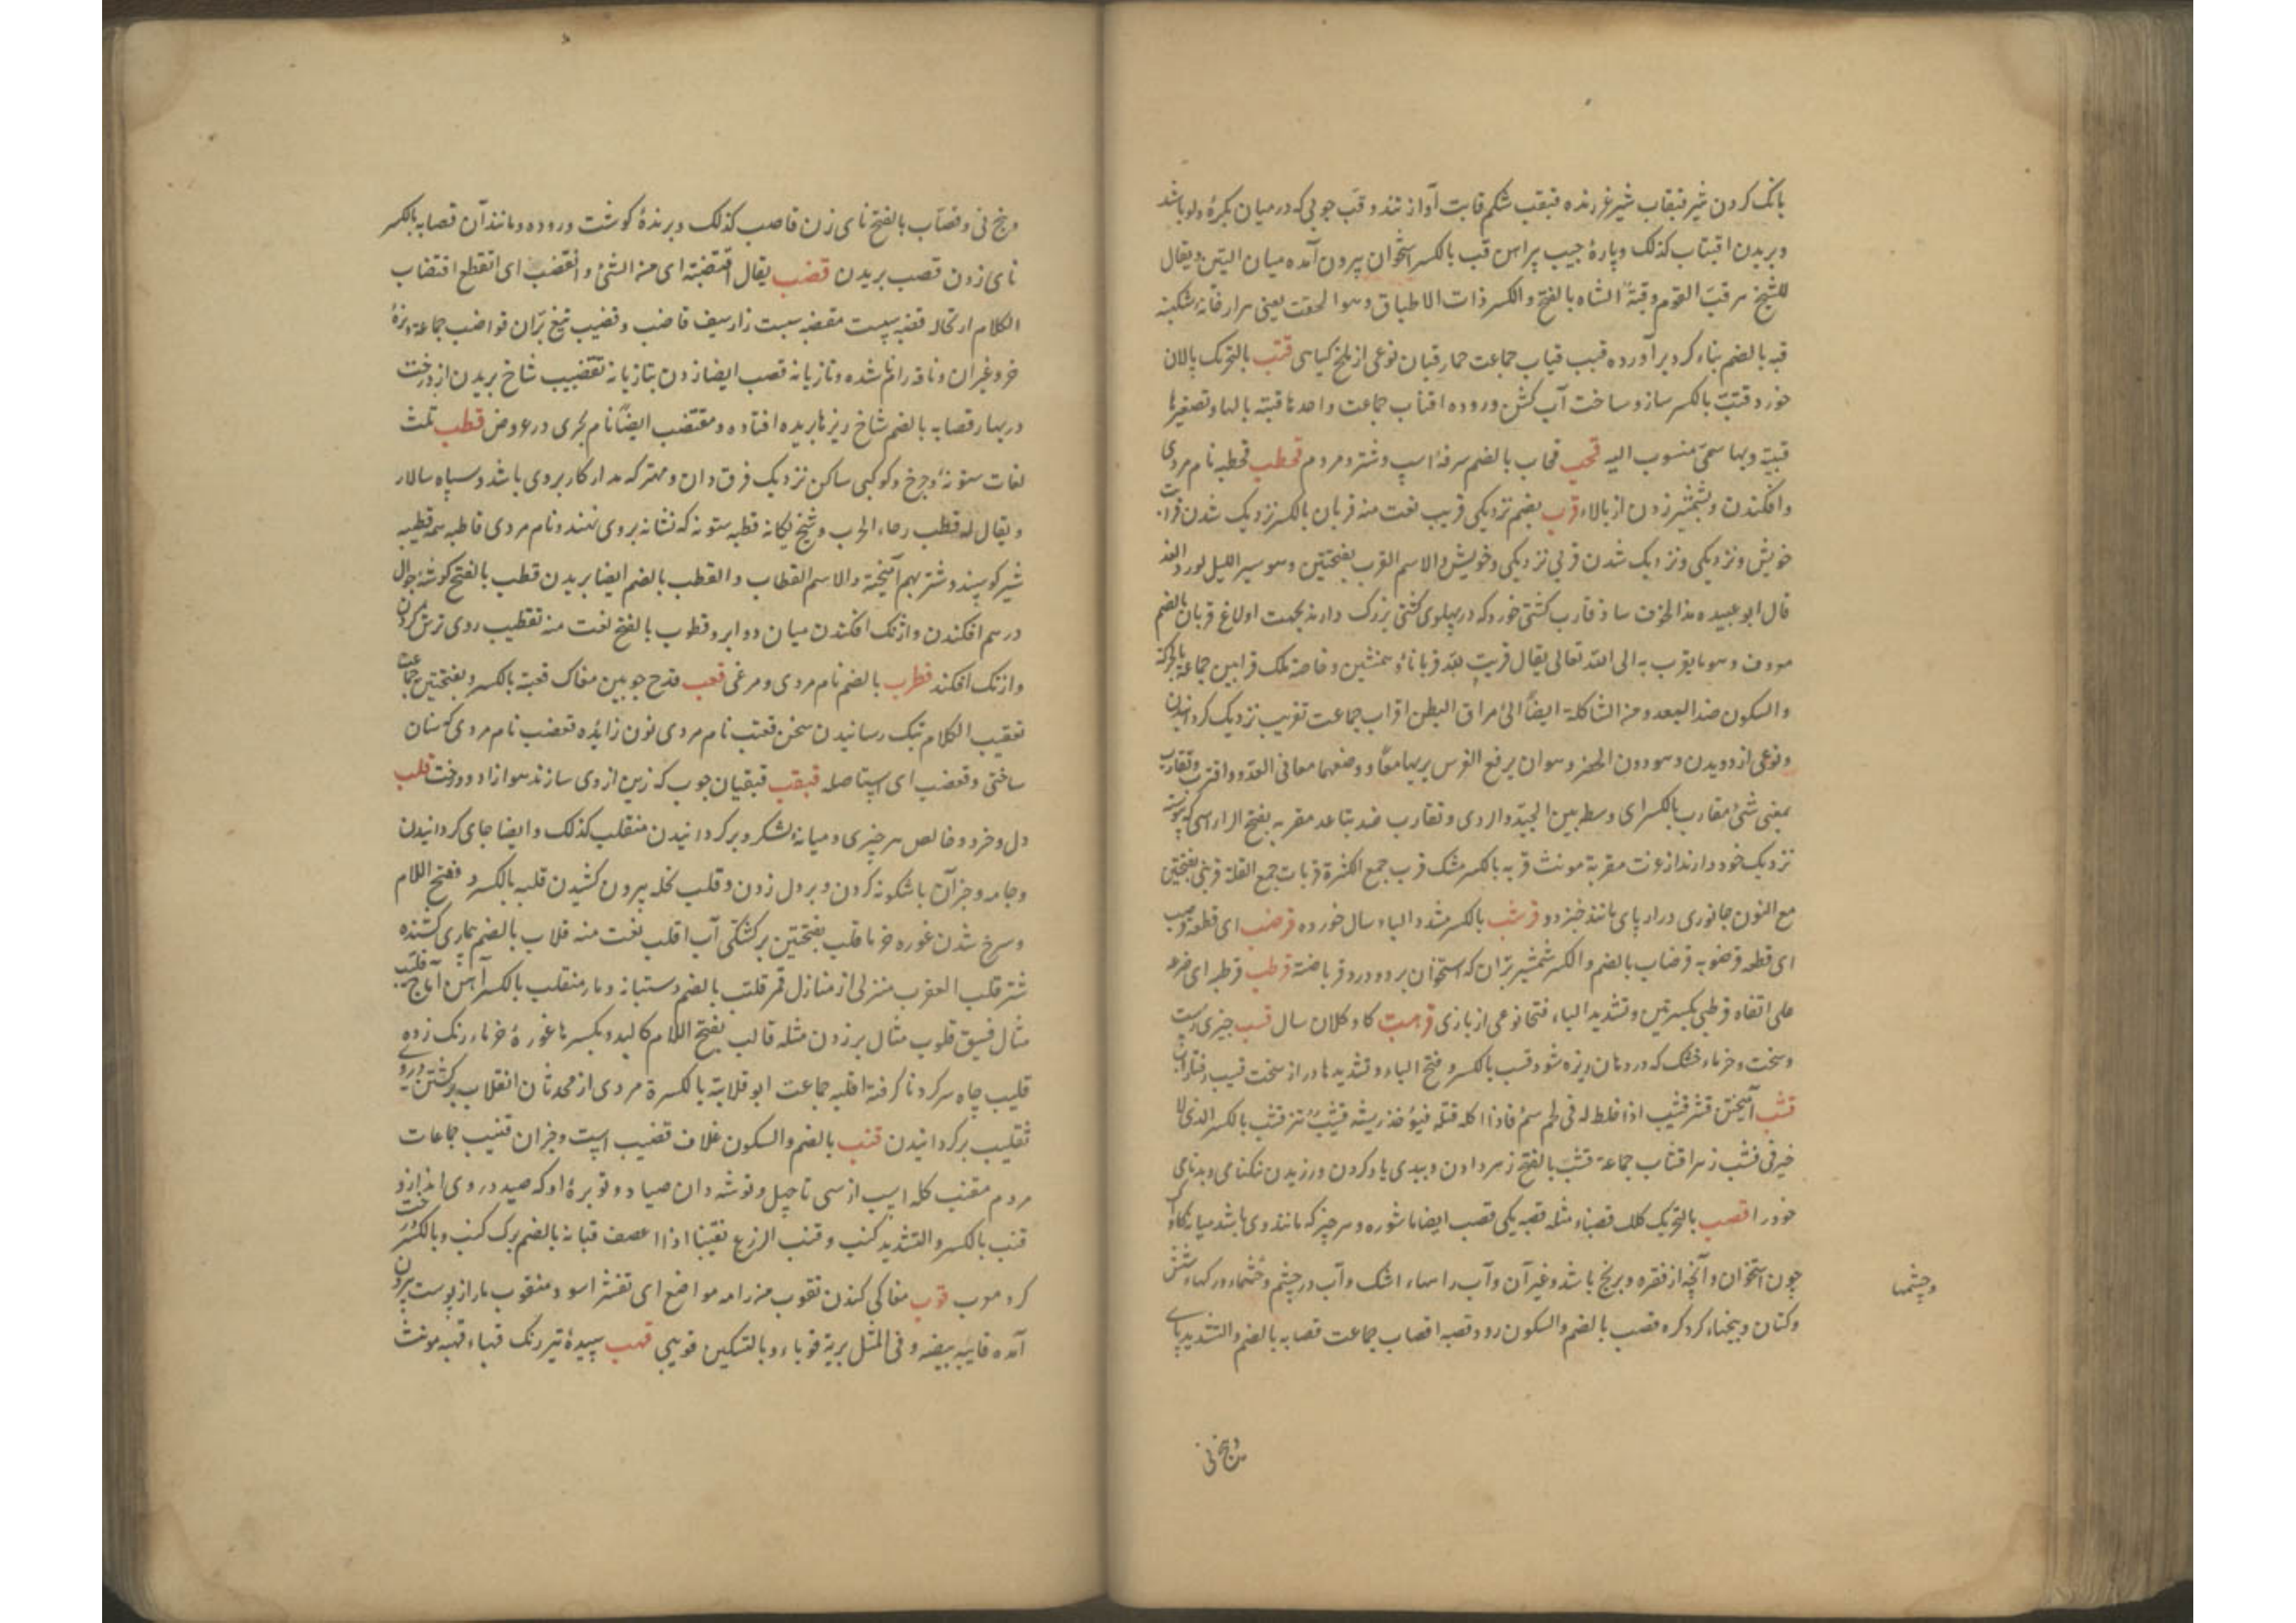 بانک کردن شیر قبقاب شیر غرنده قبقب شکم قابت آواز تند و قب چوبی که درمیان بکره ودلو باشد
وبریدن اقتباب کذلک وپارهٔ جیب پیراهن قب بالکسر استخوان بیرون آمده میان الیتین ویقال
للشیخ هر قب القوم وقبة الشاه بالفتح والکسر ذات الاطباق وهوا لحفت یعنی هزارخانهٔ شکنبه
قبه بالضم بناء کرد برآورده قبب قباب جماعت حمارقبان نوعی از ملخ کیاهی قتب بالتحریک پالان
خورد وقتب بالکسر ساز وساخت آب کش وروده اقتاب جماعت واحدها قتبة بالهاء وتصغیرها
قتیبة وبها سمی منسوب الیه قحب قحاب بالضم سرفهٔ اسپ وشتر ومردم قحطب قحطبه نام مردی
وافکندن وبشمشیر زدن از بالاء قرب بضم نزدیکی قریب نعت منه قربان بالکسر نزدیک شدن قرابت
خویش ونزدیکی ونزدیک شدن قربی نزدیکی وخویش والاسم القرب بفتحتین وهو سیر اللیل لورد الغد
قال ابو عبیده هذا الحرف شاذ قارب کشتی خورد که در پهلوی کشتی بزرک دارند بجهت اولاغ قربان بالضم
معروف وهو ما یقرب به الی الله تعالی یقال قربت لله قربانا وهمنشین وخاصهٔ ملک قرابین جماعة بالحرکة
والسکون ضد البعد ومن الشاکلة ایضا الی مراق البطن اقراب جماعت تقریب نزدیک کردانیدن
ونوعی از دویدن وهو دون الحضر وهو ان یرفع الفرس یدیها معا ووضعهما معا فی العدو واقترب وتقارب
بمعنی شئ مقارب بالکسر ای وسط بین الجید والردی وتقارب ضد تباعد مقربه بفتح الراء اسپی که پیوسته
نزدیک خود دارند از عزت مقربة مونث قربه بالکسر مشک قرب جمع الکثرة قربات جمع القلة قرنبی بفتحتین
مع النون جانوری دراز پای مانند خبزدو قرشب بالکسر مشدد الباء سال خورده قرضب ای قطعه وقرضب
ای قطعه قرضوبه قرضاب بالضم والکسر شمشیر بران که استخوان برد ودزد قراضبة قرطب قرطبه ای صرعه
علی قفاه قرطبی بکسرتین وتشدید الباء فتحا نوعی از بازی قرهب کاو کلان سال قسب چیزی زشت
وسخت وخرماء خشک که در دهان ریزه شود قسب بالکسر وفتح الباء وتشدیدها دراز سخت قسیب رفتار آب
قشب آمیختن قشر قشیب اذا خلط له فی لحم سم فاذا اکله قتله فیؤخذ ریشه قشیب تر قشب بالکسر الذی لا
خیر فی قشب زهر اقشاب جماعة قشب بالفتح زهر دادن وببدی یاد کردن وورزیدن نیکنامی وبدنامی
خود را قصب بالتحریک کلک قصباء مثله قصبه یکی قصب ایضا ماشوره وهر چیز که مانند وی باشد میان کاواک
چون استخوان وآنچه از نقره وبرنج باشد وغیر آن وآب راهها اشک وآب در چشم وچشماء ورکهاء شش
وکتان وبیخهاء کرد کره قصب بالضم والسکون روده قصبه اقصاب جماعت قصابه بالضم والتشدید پای
وچشمها
وبیخ نی
وبیخ نی وقصاب بالفتح نای زن قاصب کذلک وبرندهٔ کوشت وروده ومانند آن قصابه بالکسر
نای زدن قصب بریدن قضب یقال اقتضبته ای من الشئ وانقضب ای انقطع اقتضاب
الکلام ارتجال قضبه سپست مقضبه سپست زار سیف قاضب وقضیب تیغ بران قواضب جماعة ونرهٔ
خر وغیر آن وناقهٔ رام ناشده وتازیانه قضب ایضا زدن بتازیانه تقضیب شاخ بریدن از درخت
در بهار قضابه بالضم شاخ ریزها بریده افتاده ومقتضب ایضا نام بحری در عروض قطب ثلث
لغات ستونهٔ چرخ وکوکبی ساکن نزدیک فرقدان ومهتر که مدار کار بروی باشد وسپاه سالار
ویقال له قطب رحاء الحرب وشیخ یکانه قطبه ستونه که نشانه بروی نهند ونام مردی قاطبه همه قطیبه
شیر کوسپند وشتر بهم آمیخته والاسم القطاب والقطب بالضم ایضا بریدن قطب بالفتح کوشهٔ جوال
درهم افکندن وازنک افکندن میان دو ابرو قطوب بالفتح نعت منه تقطیب روی ترش کردن
وازنک افکند قطرب بالضم نام مردی ومرغی قعب قدح چوبین مغاک قعبة بالکسر وبفتحتین جماعت
تقعیب الکلام بتک رسانیدن سخن قعنب نام مردی نون زایده قعضب نام مردی که سنان
ساختی وقعضب ای استاصله قبقب قبقبان چوب که زین از وی سازند هو آزاد ودرخت قلب
دل وخرد وخالص هر چیزی ومیانهٔ لشکر وبرکردانیدن منقلب کذلک وایضا جای کردانیدن
وجامه وجز آن باشکونه کردن وبر دل زدن وقلب نخله بیرون کشیدن قلبه بالکسر وفتح اللام
وسرخ شدن غوره خرما قلب بفتحتین برکشتکی آب اقلب نعت منه قلاب بالضم بیماری کشنده
شتر قلب العقرب منزلی از منازل قمر قلب بالضم دستبانه ومار منقلب بالکسر آهن آماج قلیب
مثال فسیق قلوب مثال برزدن مثله قالب بفتح اللام کالبد وبکسرها غورهٔ خرماء رنک زده
قلیب چاه سر کرد ناکرفته اقلبه جماعت ابو قلابة بالکسرة مردی از محدثان انقلاب برکشتن در وی
تقلیب برکردانیدن قنب بالضم والسکون غلاف قضیب اسپ وجز آن قنیب جماعات
مردم مقنب کله اسب از سی تا چهل وتوشه دان صیاد وتوبرهٔ او که صید در وی اندازد
قنب بالکسر والتشدید کنب وقنب الزرع تقنیبا اذا اعصف قنابه بالضم برک کنب وبالکسر درخت
کرد موب قوب مغاکی کندن تقوب من رامه مواضع ای تقشر اسود متقوب مار از پوست بیرون
آمده قائبه بیضه وفی المثل بریة قوباء وبالتسکین قوبی قهب سپیدهٔ تیره رنک قهباء قهبه مونث